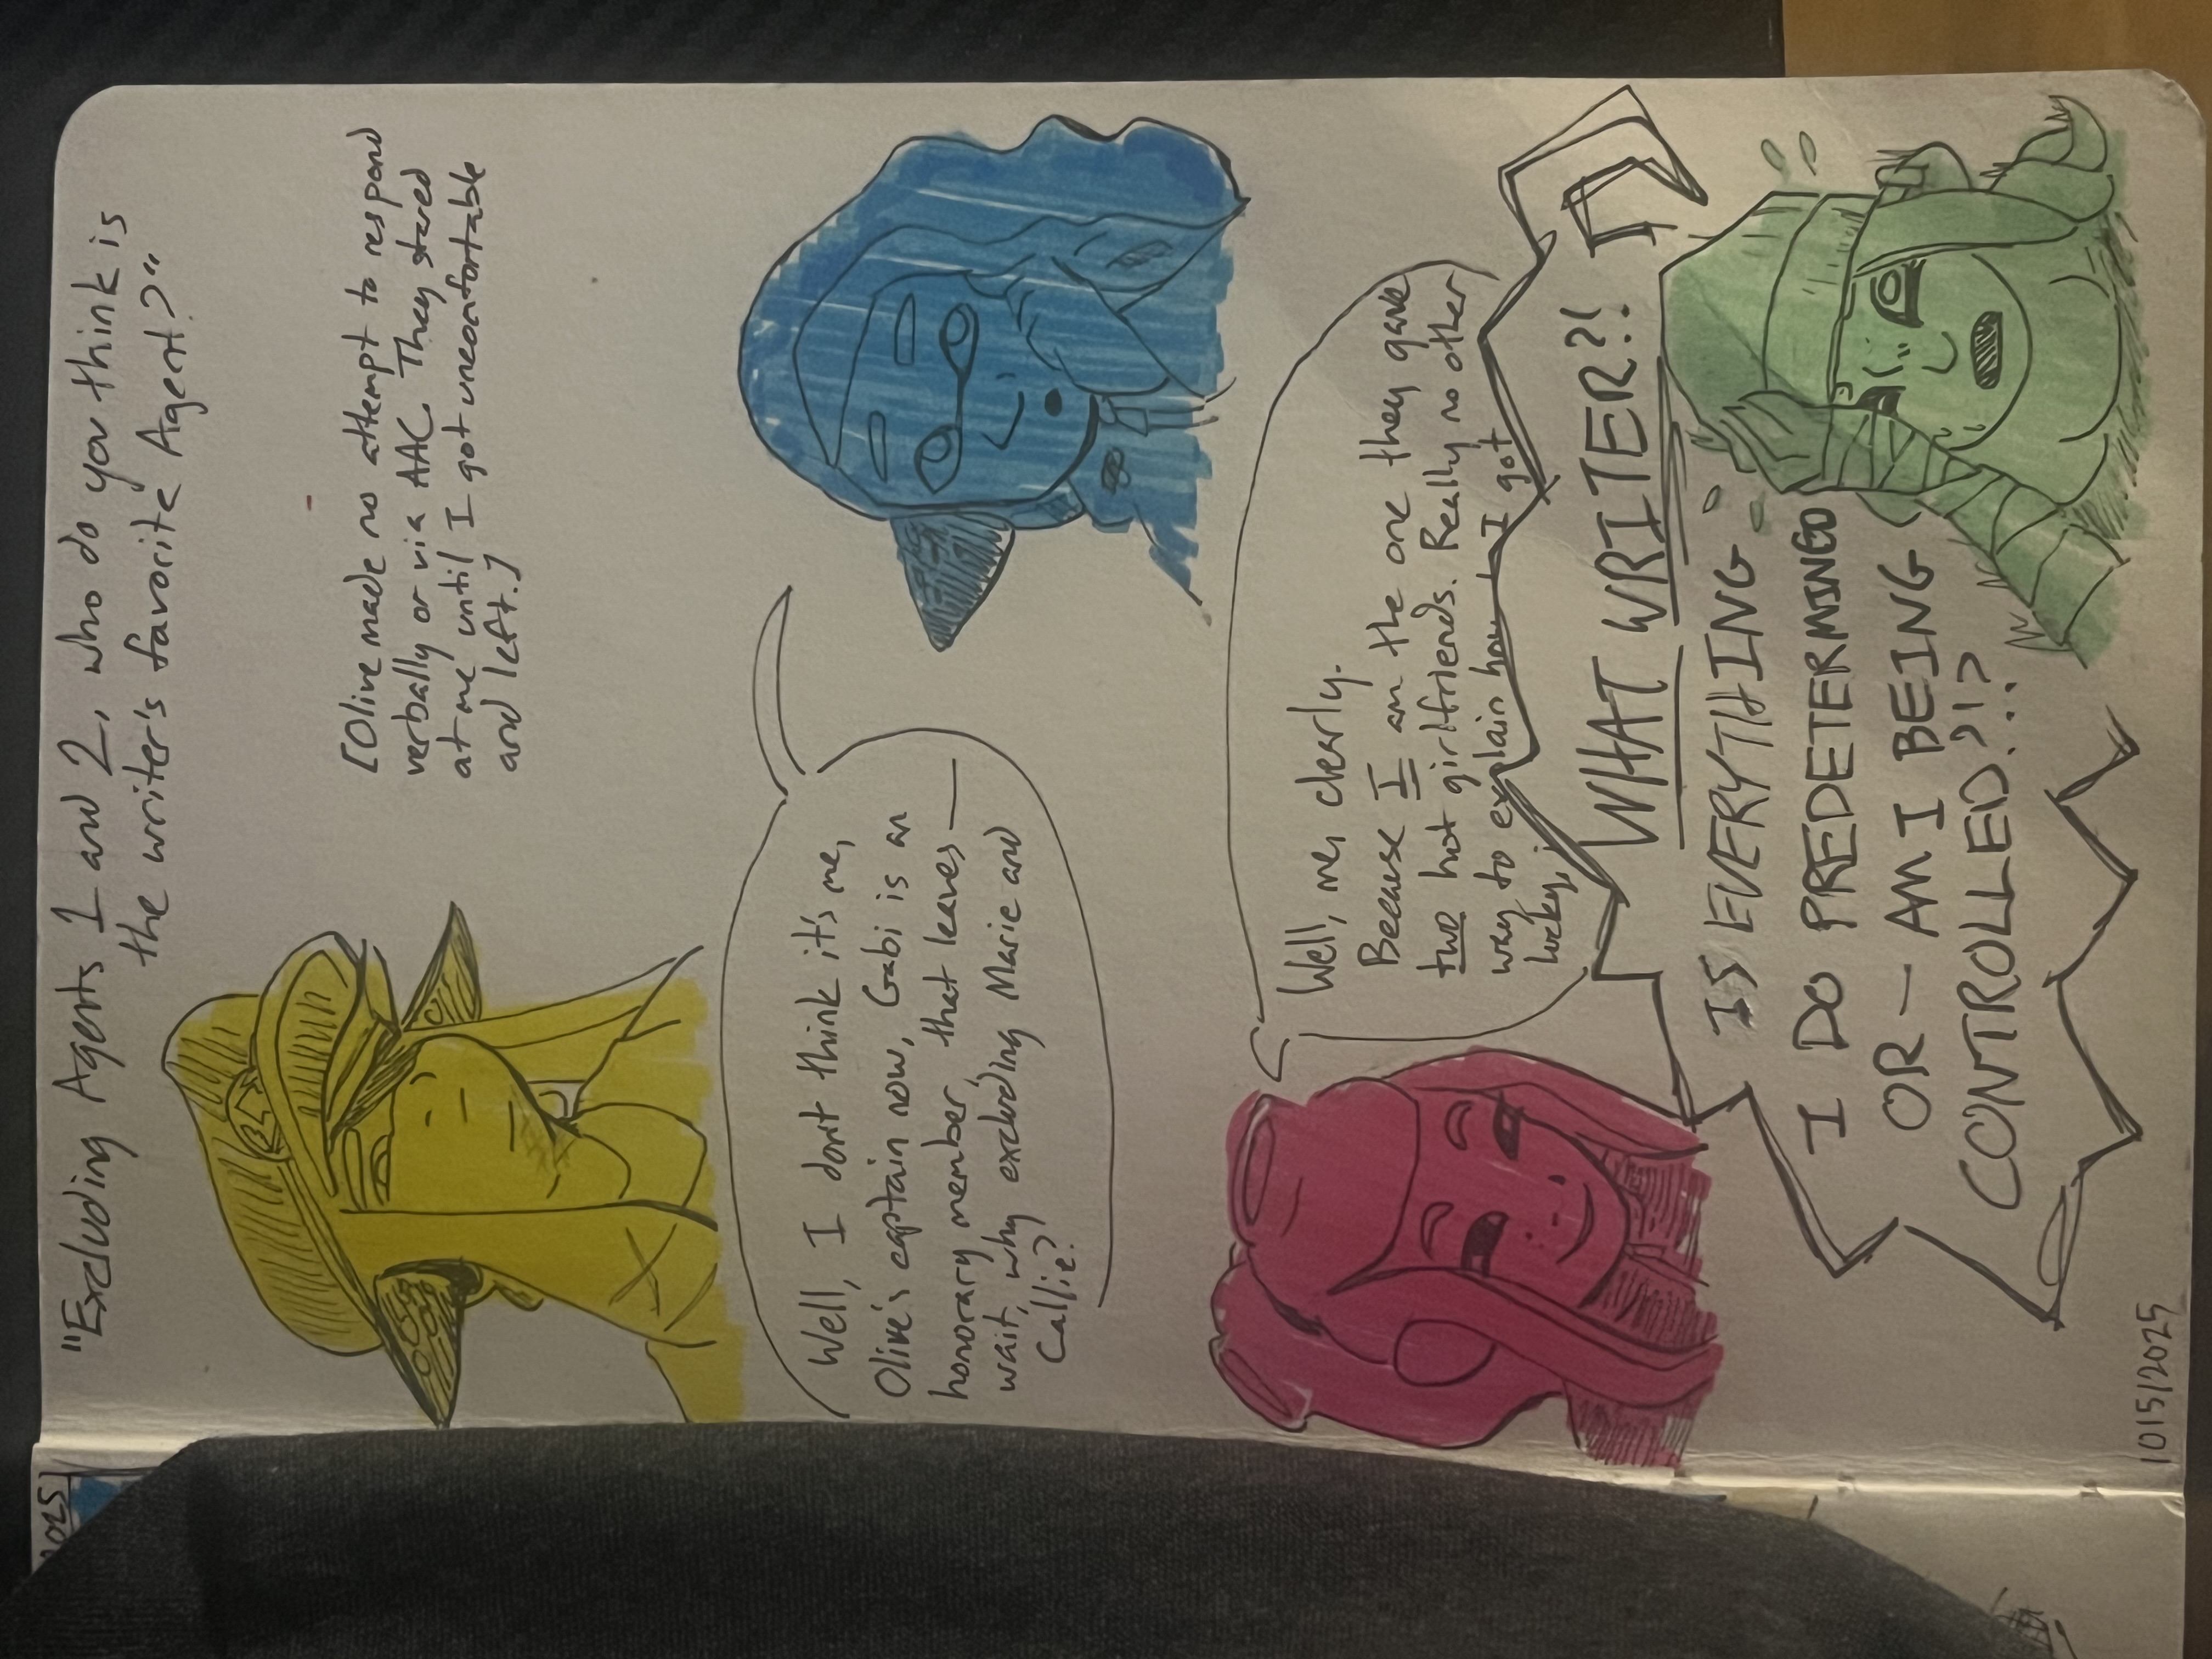 "Excluding Agents 1 and 2, who do you think is
the writer's favorite Agent?"
[Olive made no attempt to respond
verbally or via AAC. They stared
at me until I got uncomfortable
and left.]
Well, I don't think it's me,
Olive's captain now, Gabi is an
honorary member, that leaves—
wait, why excluding Marie and
Callie?
Well, me, clearly.
Because I am the one they gave
two hot girlfriends. Really no other
way to explain how I got
lucky,
WHAT WRITER?!
IS EVERYTHING
I DO PREDETERMINED
OR— AM I BEING
CONTROLLED?!?
10/5/2025
2025